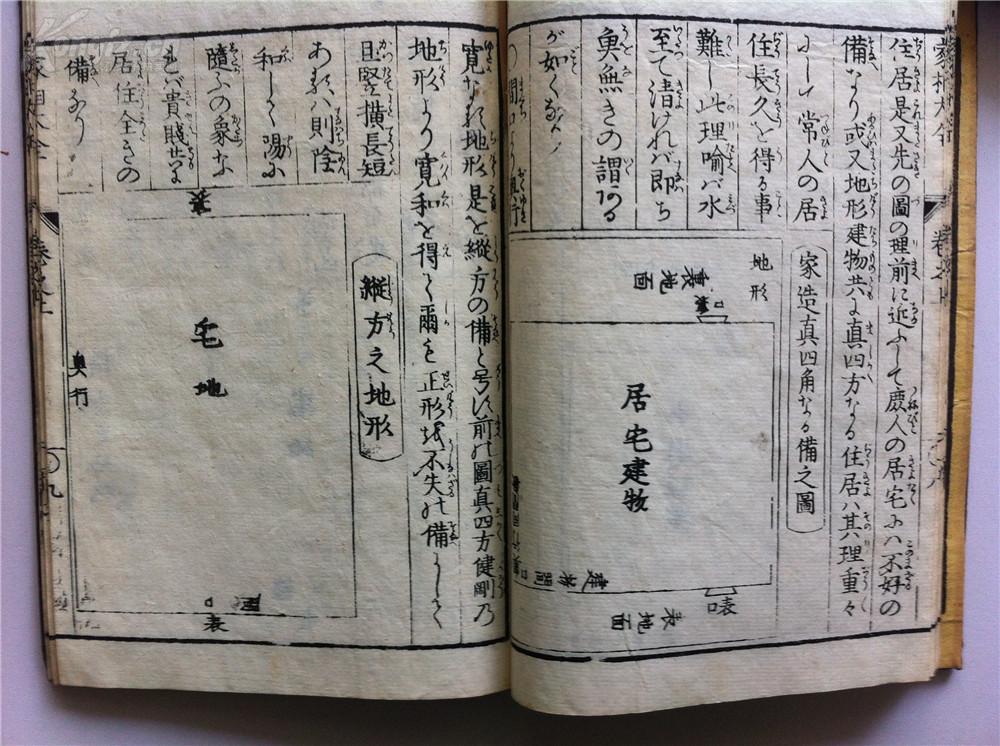 住居是又先の圖の理前に近ふして慶人の居宅にハ不好の
備なり或又地形建物共に真四方なる住居ハ其理重々
にして常人の居
住長久を得る事
難し此理喩バ水
至て清けれバ即ち
魚無きの謂ある
が如くなり
家造真四角なる備之圖
地形
裏地面
裏口
居宅建物
表口
表地面
寛なる地形是を縦方の備と号す前の圖真四方健剛乃
地形より寛和を得て爾も正形を不失の備にして
且竪横長短
あるハ則陰
和して陽に
隨ふの象な
れバ貴賤共に
居住全きの
備なり
縦方之地形
裏
宅地
奥行
表口